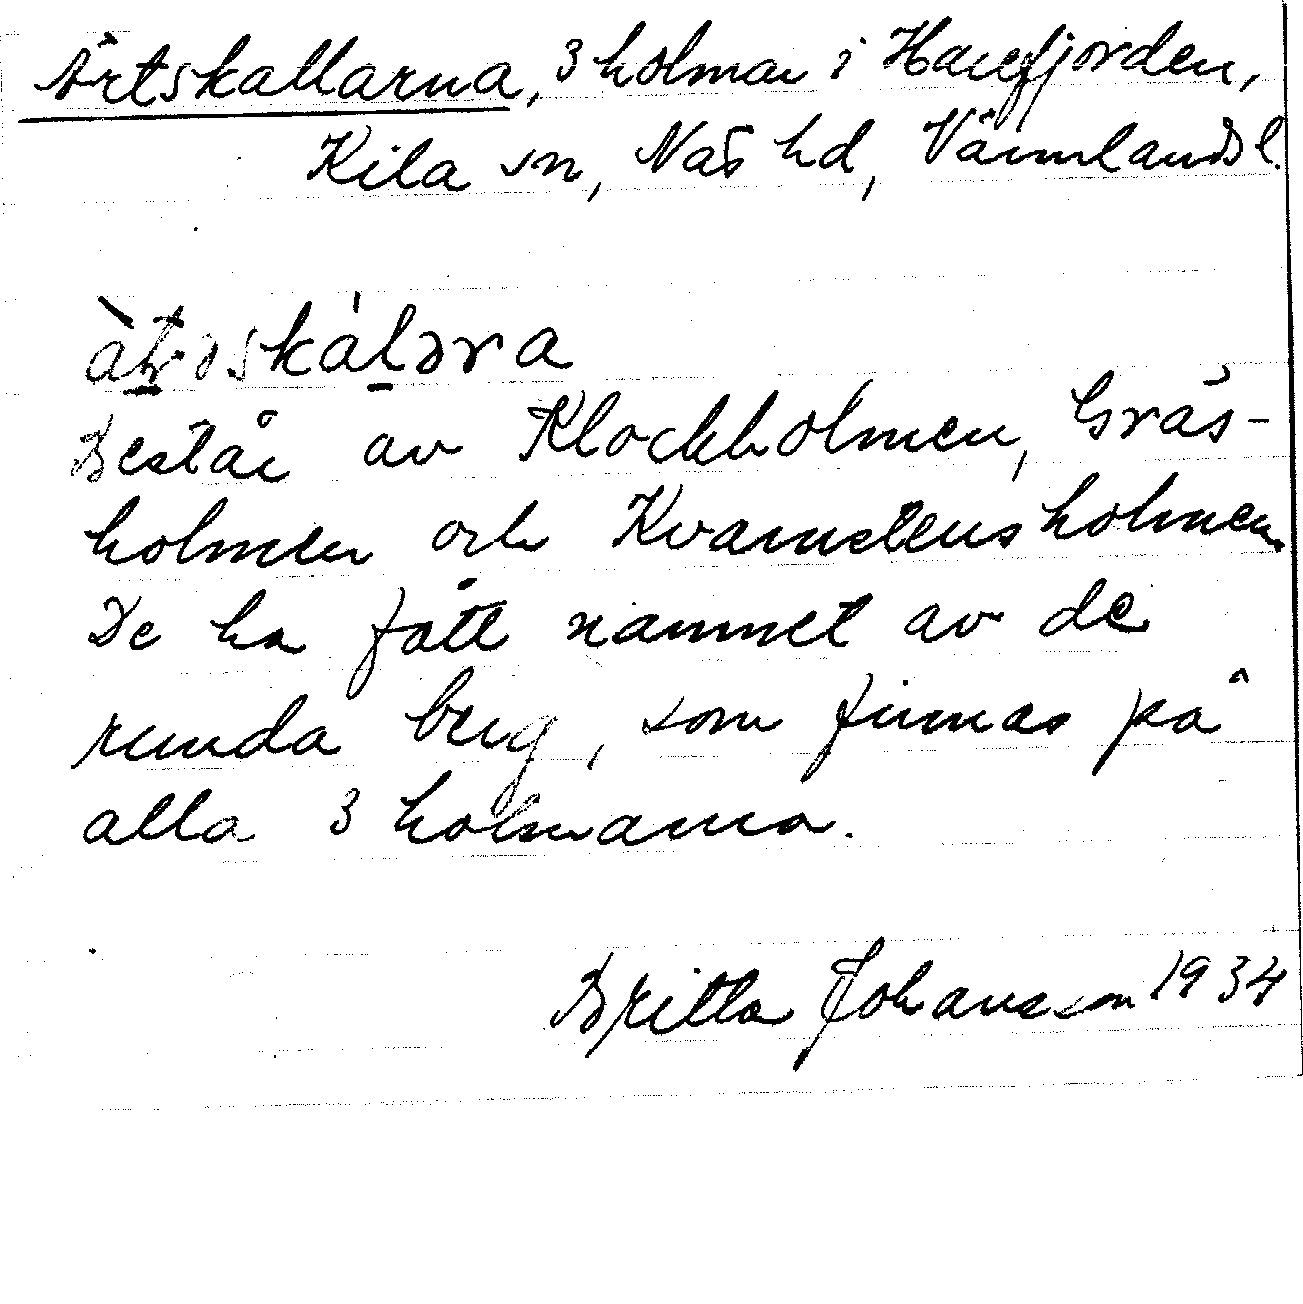 Ärtskallarna, 3 holmar i Harefjorden,
Kila sn, Näs hd, Värmlands l.
Består av Klockholmen, Gräs-
holmen och Kvarnstensholmen.
De ha fått namnet av de
runda berg, som finnas på
alla 3 holmarna.
Britta Johansson 1934